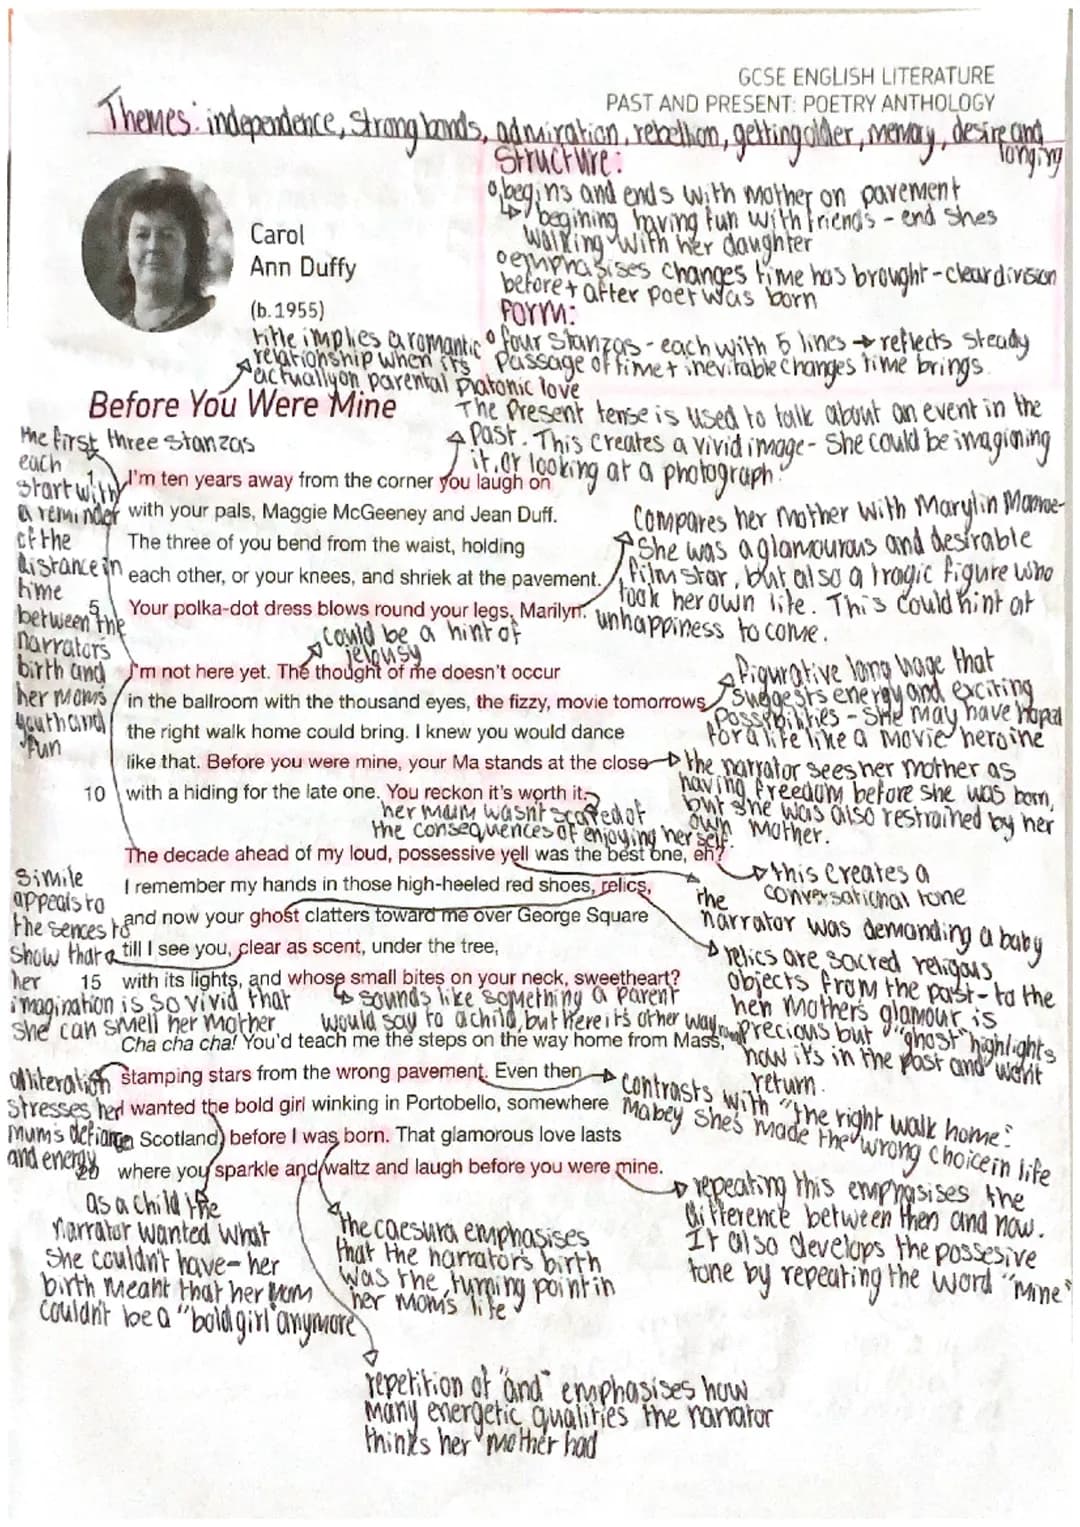 GCSE ENGLISH LITERATURE
PAST AND PRESENT: POETRY ANTHOLOGY
Themes: independence, strong bonds, admiration, rebellion, getting older, memory, desire and
longing
Structure:
begins and ends with mother on pavement
↳ begining having fun with friends - end shes
walking with her daughter
emphasises changes time has brought - clear division
before + after poet was born
Form:
four stanzas - each with 5 lines → reflects steady
passage of time + inevitable changes time brings.
Carol
Ann Duffy
(b.1955)
title implies a romantic
relationship when its
actually on parental platonic love
Before You Were Mine
The present tense is used to talk about an event in the
past. This creates a vivid image - She could be imagining
it, or looking at a photograph.
the first three stanzas
each
start with
a reminder
of the
distance in
time
between the
narrators
birth and
her moms
youth and
fun
1 I'm ten years away from the corner you laugh on
with your pals, Maggie McGeeney and Jean Duff.
The three of you bend from the waist, holding
each other, or your knees, and shriek at the pavement.
5 Your polka-dot dress blows round your legs, Marilyn.
Compares her mother with Marylin Monroe-
She was a glamourous and desirable
film star, but also a tragic figure who
took her own life. This could hint at
unhappiness to come.
could be a hint of
jelousy
I'm not here yet. The thought of me doesn't occur
in the ballroom with the thousand eyes, the fizzy, movie tomorrows
the right walk home could bring. I knew you would dance
like that. Before you were mine, your Ma stands at the close
10 with a hiding for the late one. You reckon it's worth it.
Figurative language that
suggests energy and exciting
possebilities - she may have hoped
for a life like a movie heroine
the narrator sees her mother as
having freedom before she was born,
but she was also restrained by her
own mother.
her mum wasn't scared of
the consequences of enjoying herself.
The decade ahead of my loud, possessive yell was the best one, eh?
I remember my hands in those high-heeled red shoes, relics,
and now your ghost clatters toward me over George Square
till I see you, clear as scent, under the tree,
15 with its lights, and whose small bites on your neck, sweetheart?
this creates a
conversational tone
The
narrator was demanding a baby
relics are sacred religous
objects from the past - to the
her mothers glamour is
precious but "ghost" highlights
how it's in the past and won't
return.
Simile
appeals to
the sences to
show that
her
imagination is so vivid that
she can smell her mother
↳ sounds like something a parent
would say to a child, but here its other way
Cha cha cha! You'd teach me the steps on the way home from Mass,
stamping stars from the wrong pavement. Even then
I wanted the bold girl winking in Portobello, somewhere
in Scotland, before I was born. That glamorous love lasts
20 where you sparkle and waltz and laugh before you were mine.
alliteration
stresses her
mum's defiance
and energy
contrasts with "the right walk home".
Mabey she's made the wrong choice in life
repeating this emphasises the
difference between then and now.
It also develops the possesive
tone by repeating the word "mine"
as a child the
narrator wanted what
she couldn't have - her
birth meant that her mom
couldn't be a "bold girl" anymore
the caesura emphasises
that the narrators birth
was the turning point in
her mom's life
repetition of "and" emphasises how
many energetic qualities the narrator
thinks her mother had